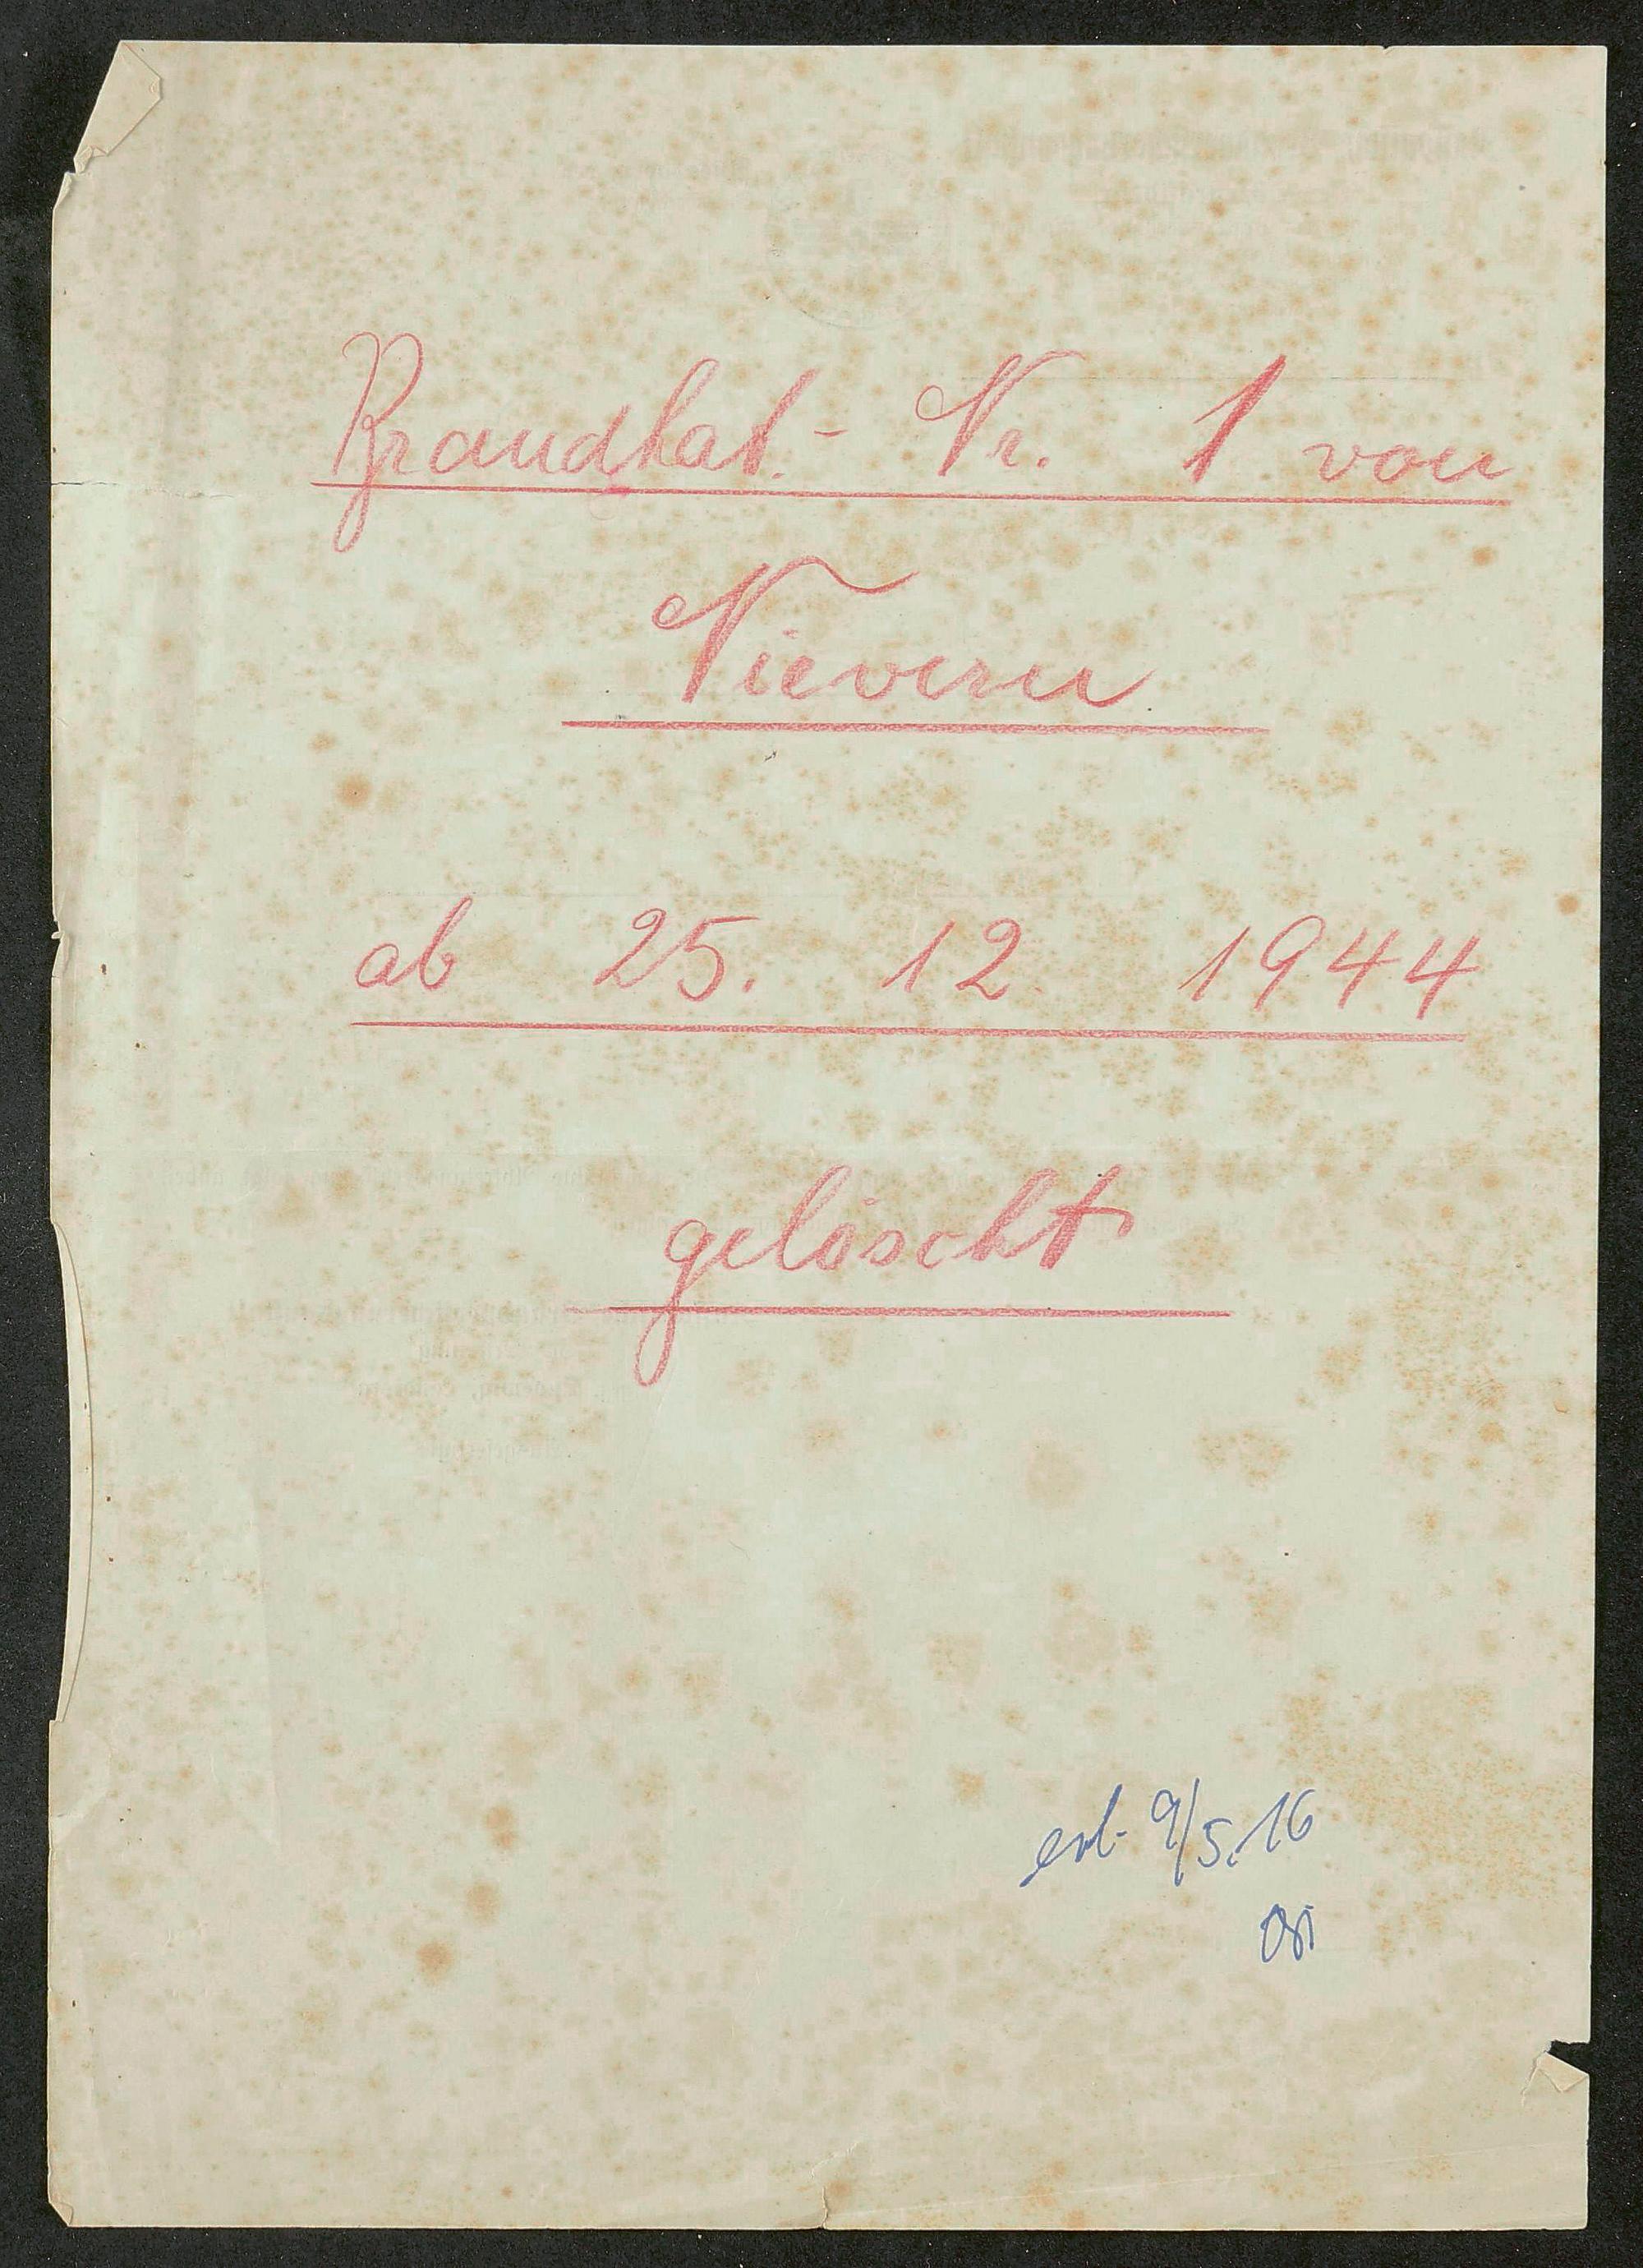 Brandkat.- Nr. 1 von
Nievern
ab 25. 12. 1944
gelöscht
erl. 9/5.16